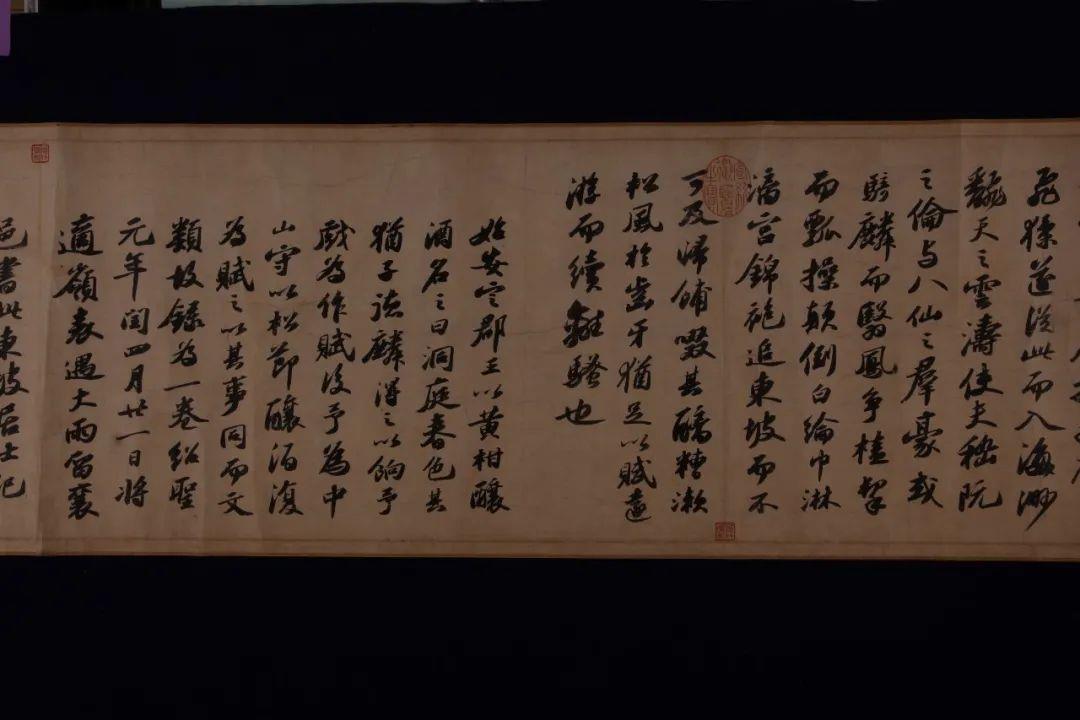 飛猱遂從此而入海渺
飜天之雲濤使夫嵇阮
之倫与八仙之羣豪或
騎麟而翳鳳争榼挈
而瓢操顛倒白綸巾淋
漓宫錦袍追東坡而不
可及歸餔歠其醨糟漱
松風於齒牙猶足以賦遠
游而續離騷也
始安定郡王以黄柑釀
酒名之曰洞庭春色其
猶子德麟得之以餉予
戲為作賦後予為中
山守以松節釀酒復
為賦之以其事同而文
類故録為一卷紹聖
元年閏四月廿一日將
適嶺表遇大雨留襄
邑書此東坡居士記